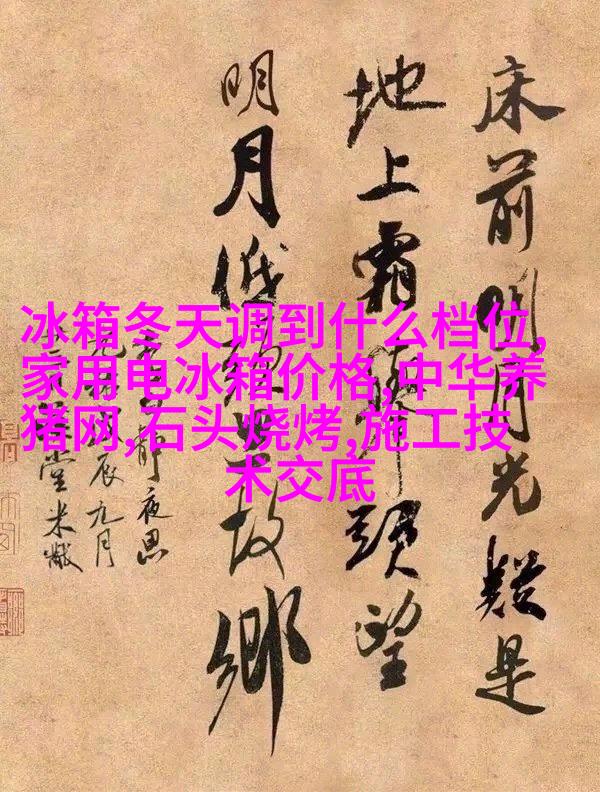 床前明月光疑是
地上霜舉頭望
明月低頭思故鄉
靜夜思
辰九月
堂米黻
冰箱冬天调到什么档位,
家用电冰箱价格,中华养
猪网,石头烧烤,施工技
术交底